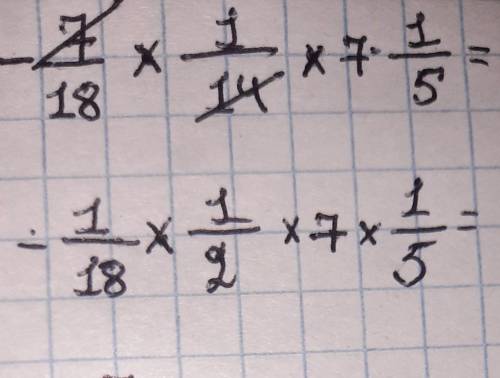 - 7/18 × 1/14 × 7 · 1/5 =
- 1/18 × 1/2 × 7 × 1/5 =